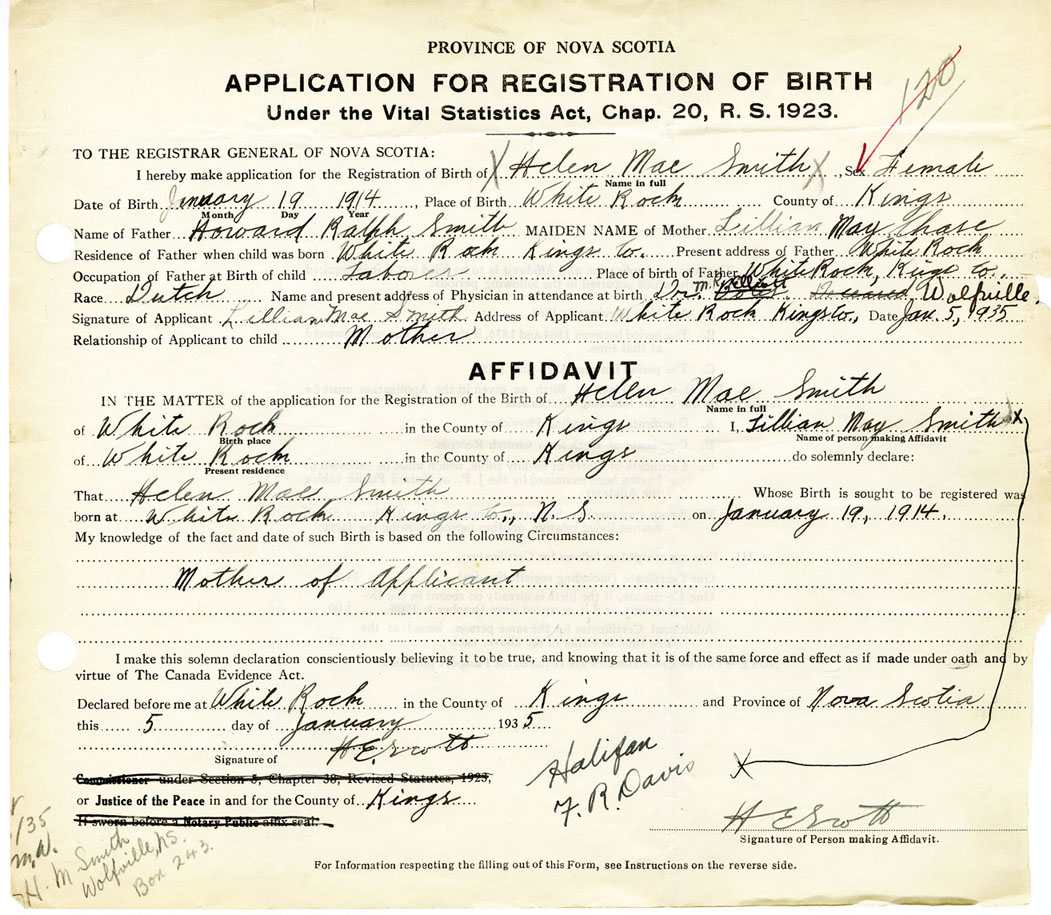 PROVINCE OF NOVA SCOTIA
APPLICATION FOR REGISTRATION OF BIRTH
Under the Vital Statistics Act, Chap. 20, R. S. 1923.
120
TO THE REGISTRAR GENERAL OF NOVA SCOTIA:
I hereby make application for the Registration of Birth of X Helen Mae Smith X, Sex Female
Name in full
Date of Birth January 19 1914, Place of Birth White Rock County of Kings
Month Day Year
Name of Father Howard Ralph Smith MAIDEN NAME of Mother Lillian May Chase
Residence of Father when child was born White Rock Kings Co. Present address of Father White Rock
Occupation of Father at Birth of child Laborer Place of birth of Father White Rock, Kings Co.
Race Dutch Name and present address of Physician in attendance at birth Dr. M.R. Elliott Wolfville.
Signature of Applicant Lillian Mae Smith Address of Applicant White Rock Kings Co., Date Jan. 5, 1935
Relationship of Applicant to child Mother
AFFIDAVIT
IN THE MATTER of the application for the Registration of the Birth of Helen Mae Smith
Name in full
of White Rock in the County of Kings I, Lillian May Smith X
Birth place Name of person making Affidavit
of White Rock in the County of Kings do solemnly declare:
Present residence
That Helen Mae Smith Whose Birth is sought to be registered was
born at White Rock Kings Co., N.S. on January 19, 1914.
My knowledge of the fact and date of such Birth is based on the following Circumstances:
Mother of Applicant
I make this solemn declaration conscientiously believing it to be true, and knowing that it is of the same force and effect as if made under oath and by
virtue of The Canada Evidence Act.
Declared before me at White Rock in the County of Kings and Province of Nova Scotia
this 5 day of January 1935
H E Scott
Signature of
Halifax
F. R. Davis
X
Commissioner under Section 5, Chapter 38, Revised Statutes, 1923,
or Justice of the Peace in and for the County of Kings
If sworn before a Notary Public affix seal.
H E Scott
Signature of Person making Affidavit.
/35
H. M Smith
Wolfville, NS.
Box 243.
For Information respecting the filling out of this Form, see Instructions on the reverse side.